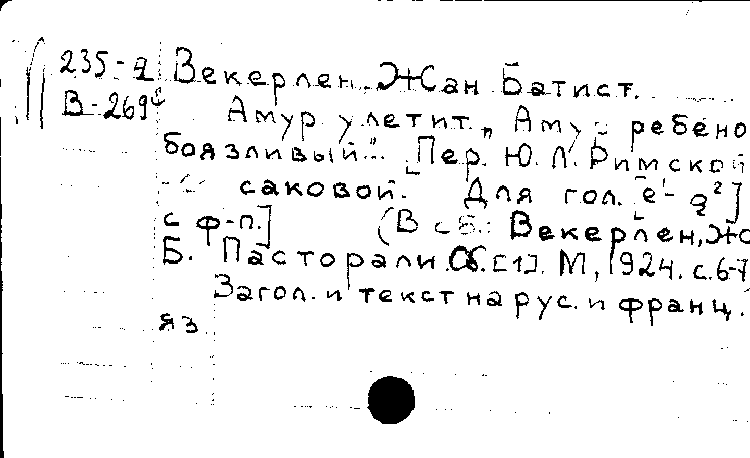 235-q Векерлен, Жан Батист.
В-269 Амур улетит. "Амур ребено
боязливый". [Пер. Ю. Л. Римской
саковой. Для гол. [e¹- g²]
с ф-п.] (В сб.: Векерлен, Жа
Б. Пасторали. Сб. [1]. М, 1924. с. 6-7
Загол. и текст на рус. и франц.
яз